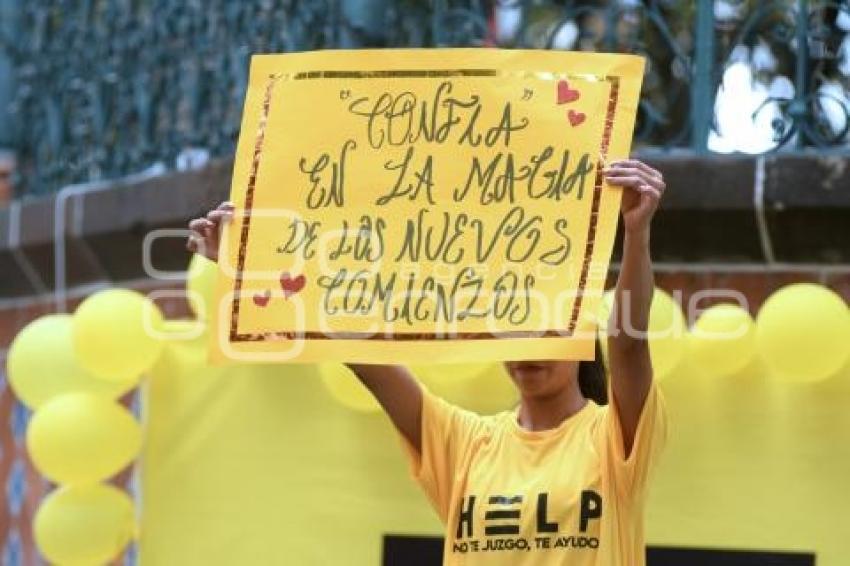 "CONFIA"
EN LA MAGIA
DE LOS NUEVOS
COMIENZOS
enfoque
HELP
NO TE JUZGO, TE AYUDO